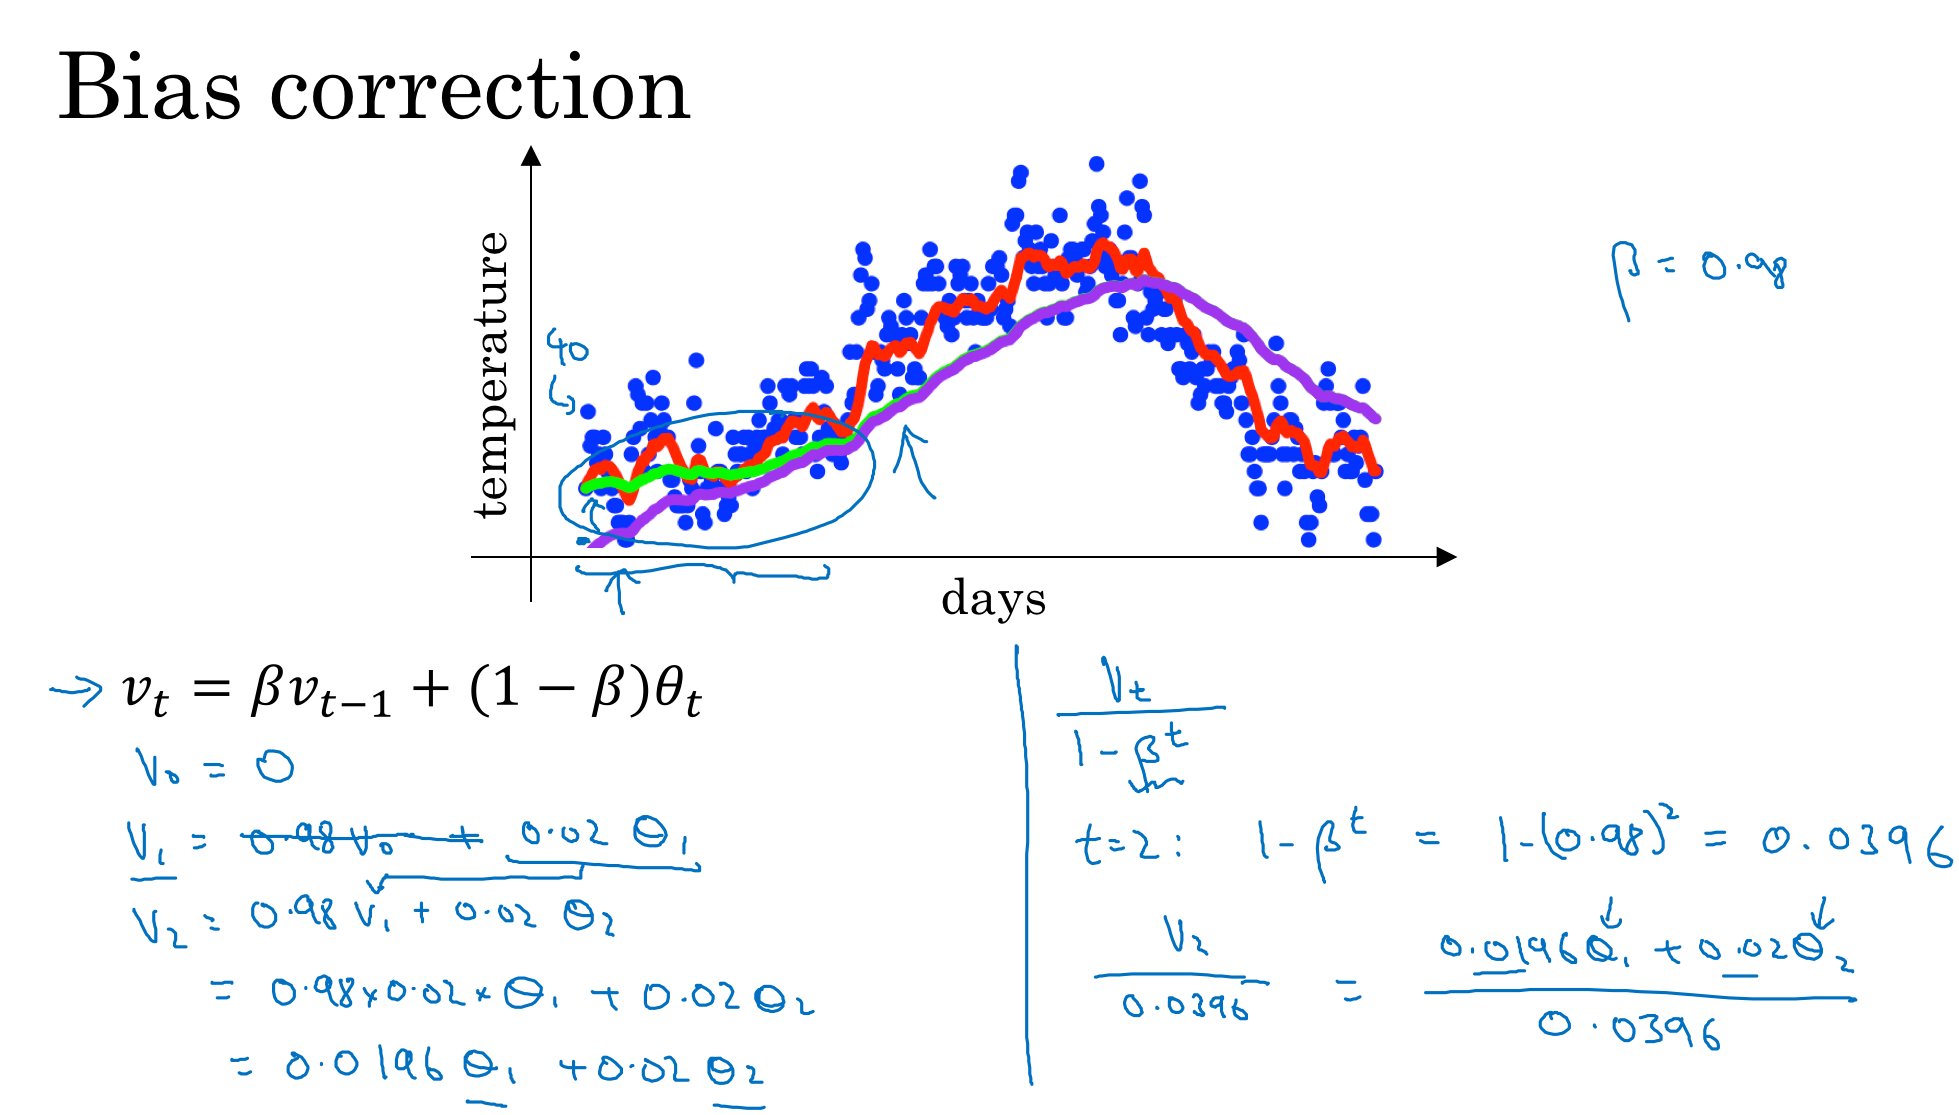 Bias correction
temperature
40
days
β = 0.98
→ vₜ = βvₜ₋₁ + (1 − β)θₜ
V₀ = 0
V₁ = 0.98 V₀ + 0.02 θ₁
V₂ = 0.98 V₁ + 0.02 θ₂
= 0.98 x 0.02 x θ₁ + 0.02 θ₂
= 0.0196 θ₁ + 0.02 θ₂
Vₜ
1 - βᵗ
t = 2 : 1 - βᵗ = 1 - (0.98)² = 0.0396
V₂ / 0.0396 = 0.0196 θ₁ + 0.02 θ₂ / 0.0396